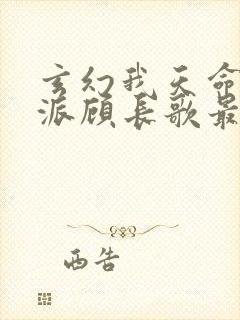 玄幻我天命
派顾长歌最
西告